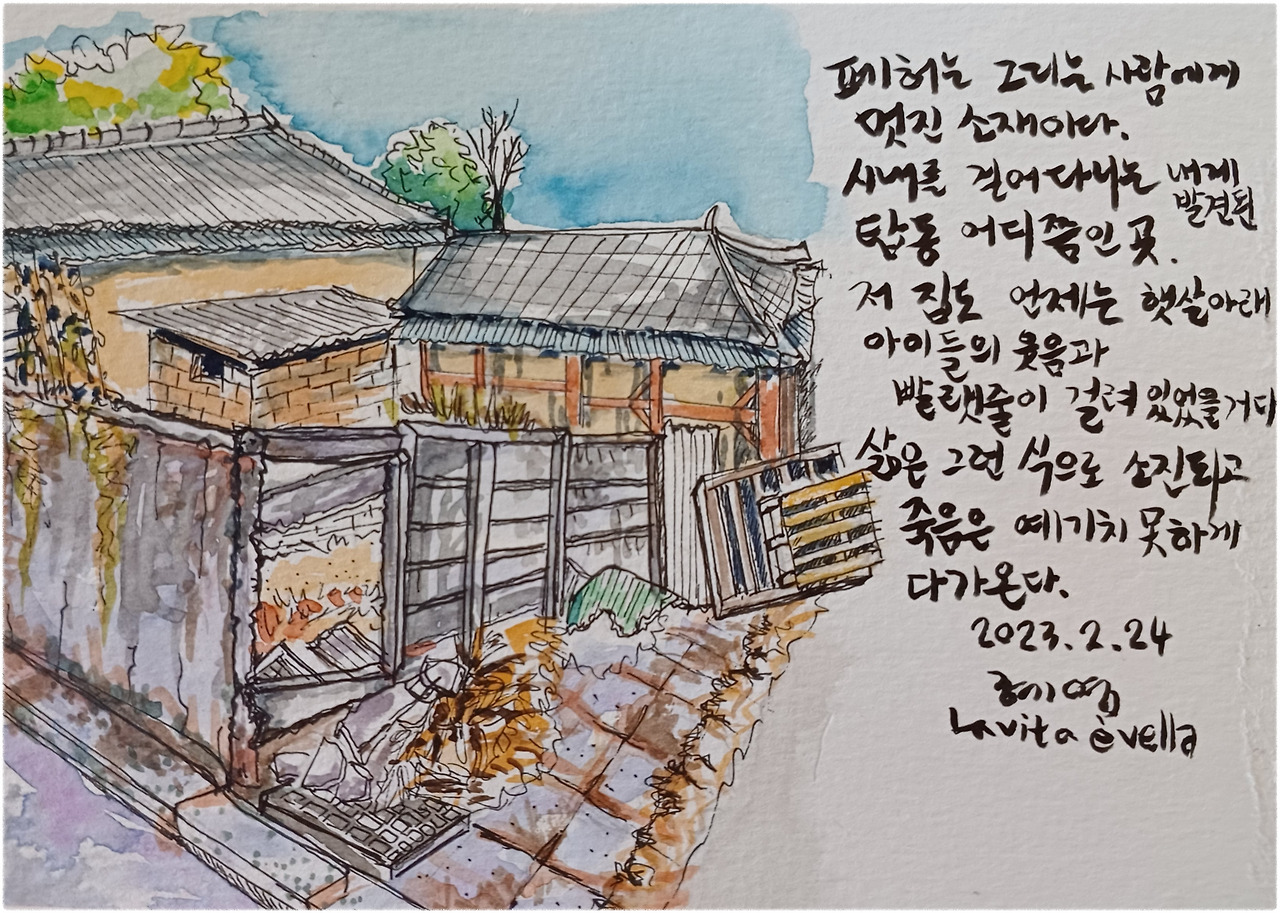 폐허는 그리는 사람에게
멋진 소재이다.
시내를 걸어다니는 내게
발견된
탑동 어디쯤인 곳.
저 집도 언제는 햇살아래
아이들의 웃음과
빨랫줄이 걸려 있었을거다
삶은 그런 식으로 소진되고
죽음은 예기치 못하게
다가온다.
2023.2.24
혜영
La vita è vella